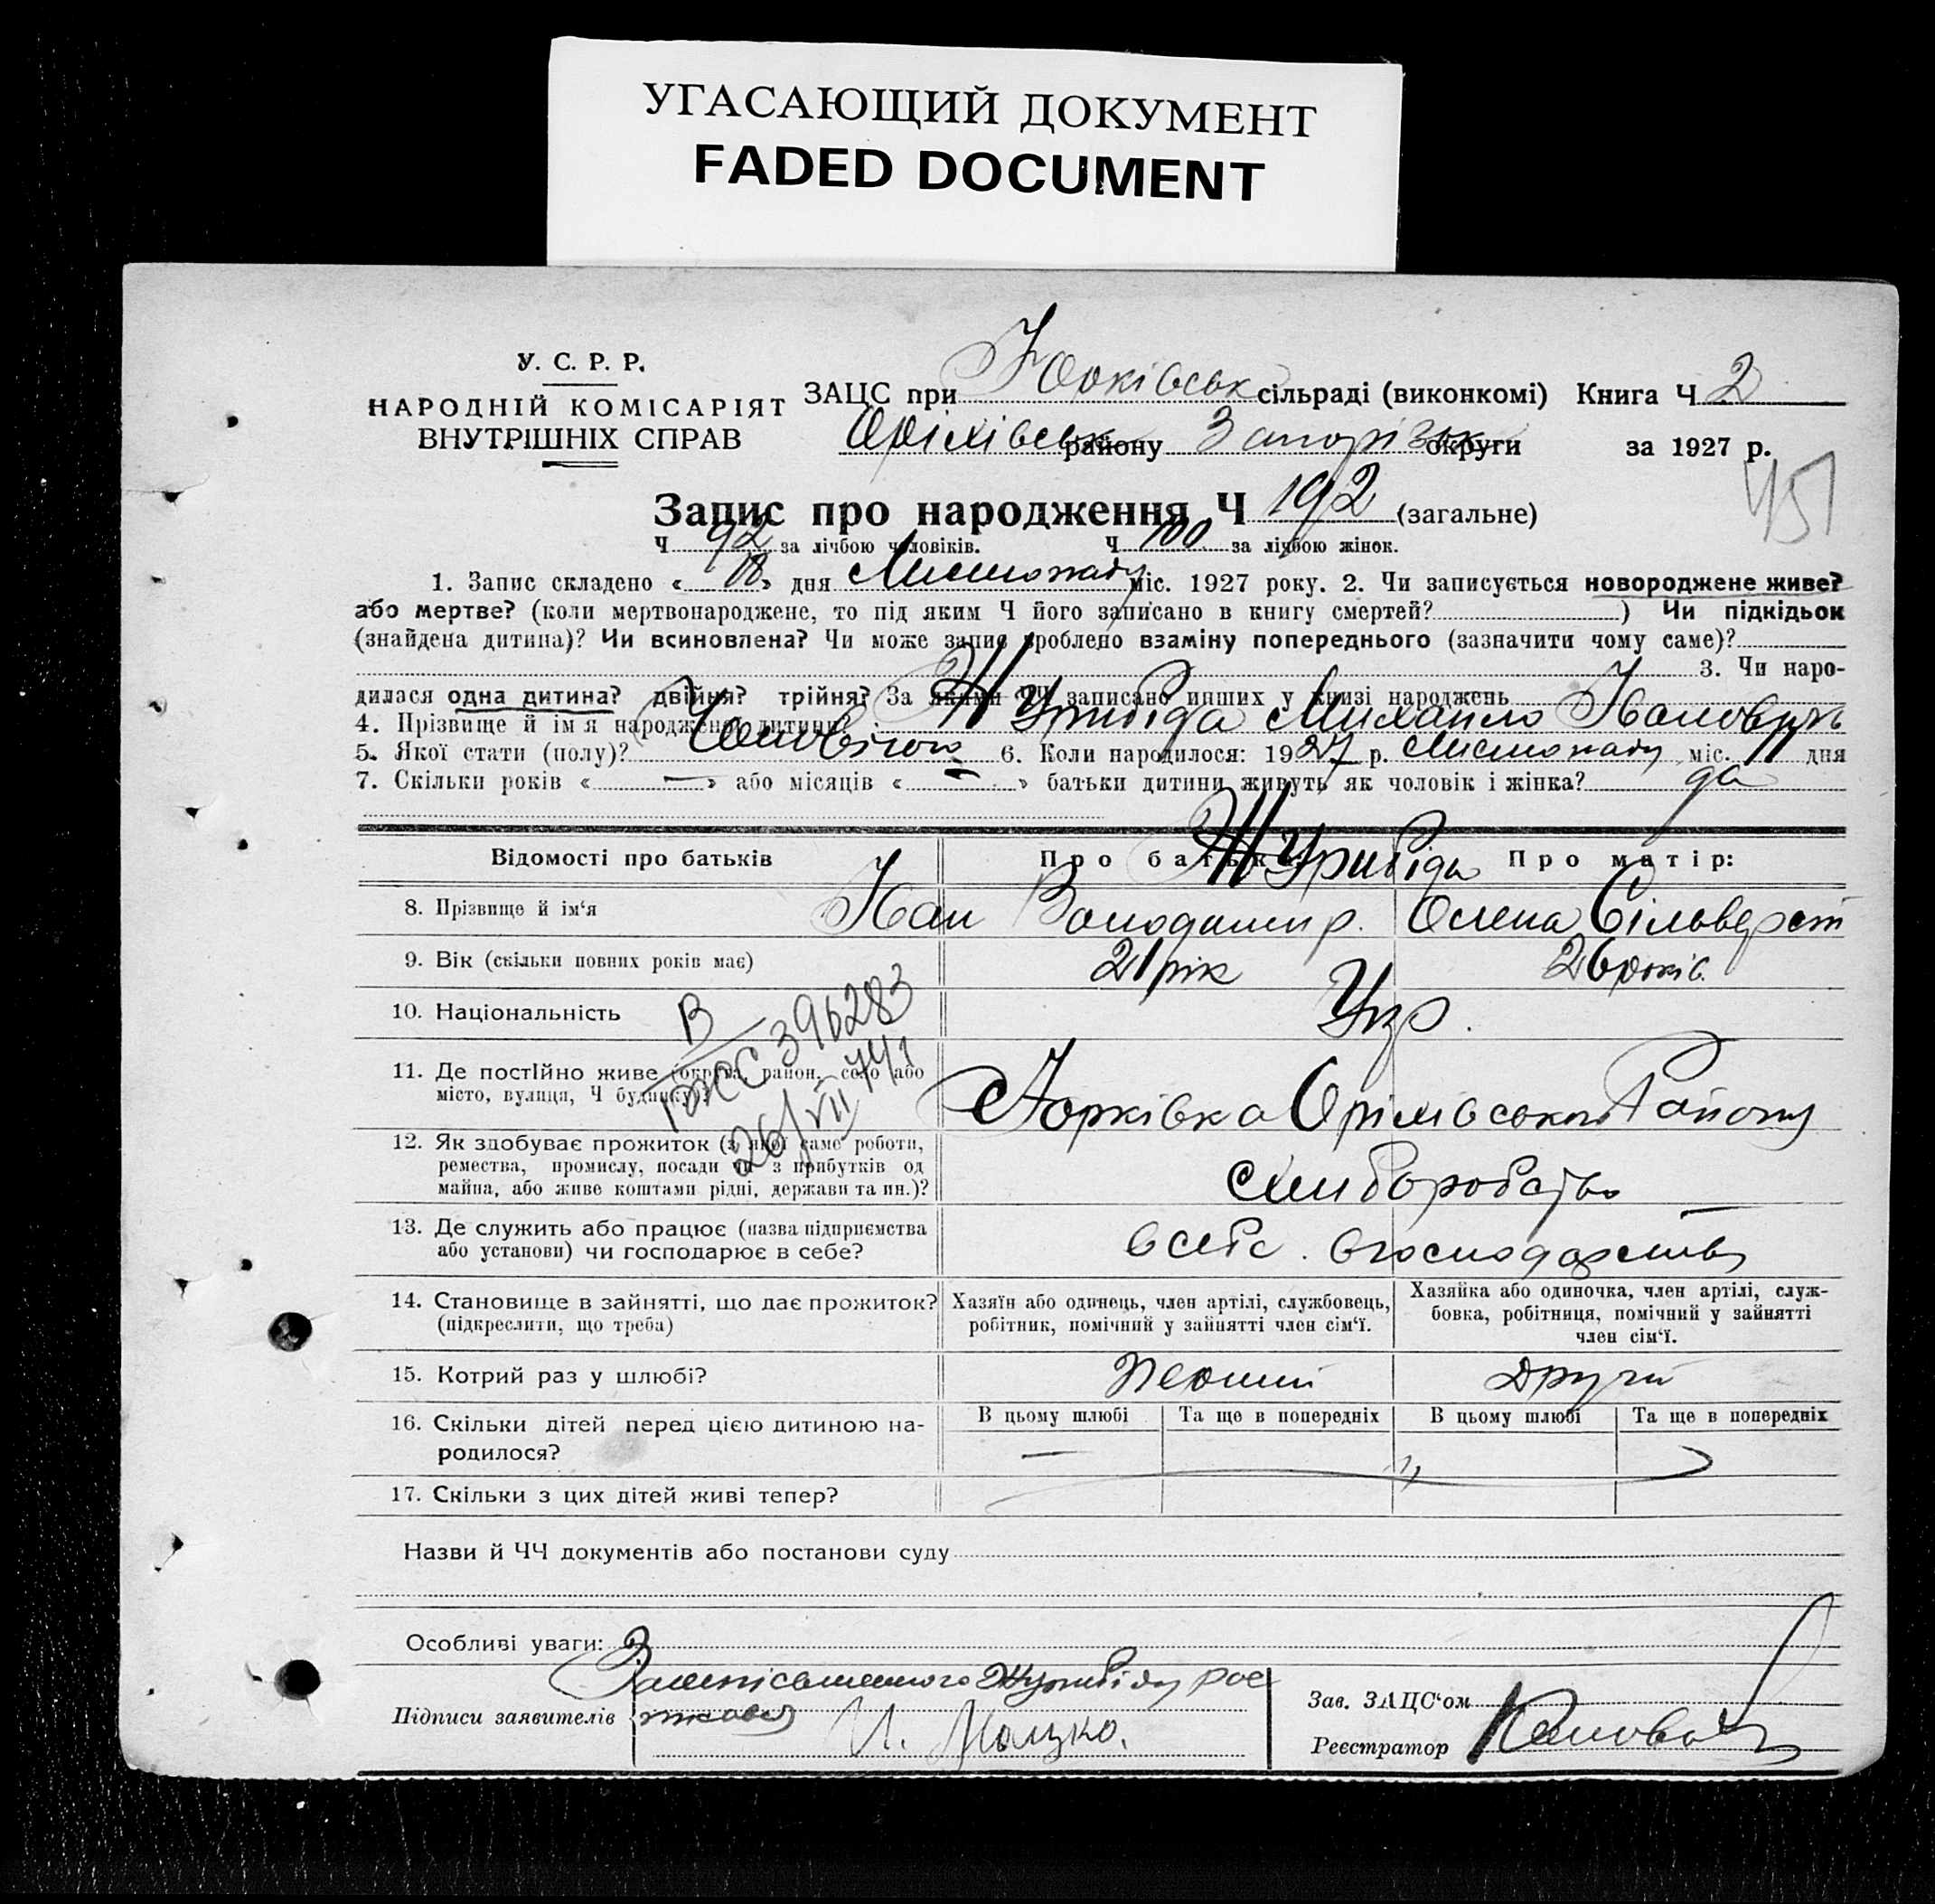 УГАСАЮЩИЙ ДОКУМЕНТ
FADED DOCUMENT
У. С. Р. Р.
НАРОДНІЙ КОМІСАРІЯТ
ВНУТРІШНІХ СПРАВ
ЗАЦС при Юрківськ сільраді (виконкомі) Книга Ч 2
Оріхівськ району Запорізьк округи за 1927 р.
451
Запис про народження Ч 192 (загальне)
Ч 92 за лічбою чоловіків. Ч 100 за лічбою жінок.
1. Запис складено « 18 » дня Листопаду міс. 1927 року. 2. Чи записується новороджене живе?
або мертве? (коли мертвонароджене, то під яким Ч його записано в книгу смертей? ) Чи підкідьок
(знайдена дитина)? Чи всиновлена? Чи може запис зроблено взаміну попереднього (зазначити чому саме)?
3. Чи наро-
дилася одна дитина? двійня? трійня? За якими ЧЧ записано инших у книзі народжень
4. Прізвище й ім'я народженої дитини? Журибіда Михайло Іванович
5. Якої стати (полу)? Чоловічого 6. Коли народилося: 1927 р. Листопаду міс. 11 дня
7. Скільки років « — » або місяців « — » батьки дитини живуть як чоловік і жінка? да
Відомості про батьків Про батька: Про матір:
Журибіда
8. Прізвище й ім'я Іван Володимир. Олена Сільверст
9. Вік (скільки повних років має) 21 рік 26 років
10. Національність Укр.
В
396283
26/VII
11. Де постійно живе (округа, район, село або
місто, вулиця, Ч будинку)? Юрківка Оріхівського Району
12. Як здобуває прожиток (з якої саме роботи,
ремества, промислу, посади чи з прибутків од
майна, або живе коштами рідні, держави та ин.)? Хліборобство
13. Де служить або працює (назва підприємства
або установи) чи господарює в себе? в себе в господарстві
14. Становище в зайнятті, що дає прожиток?
(підкреслити, що треба)
Хазяїн або одинець, член артілі, службовець,
робітник, помічний у зайнятті член сім'ї.
Хазяйка або одиночка, член артілі, служ-
бовка, робітниця, помічний у зайнятті
член сім'ї.
15. Котрий раз у шлюбі? Перший Другий
16. Скільки дітей перед цією дитиною на-
родилося?
В цьому шлюбі Та ще в попередніх В цьому шлюбі Та ще в попередніх
17. Скільки з цих дітей живі тепер?
Назви й ЧЧ документів або постанови суду
Особливі уваги:
За неписьменного Журибіду рос
писався
Підписи заявителів И. Мацко.
Зав. ЗАЦС'ом
Реєстратор